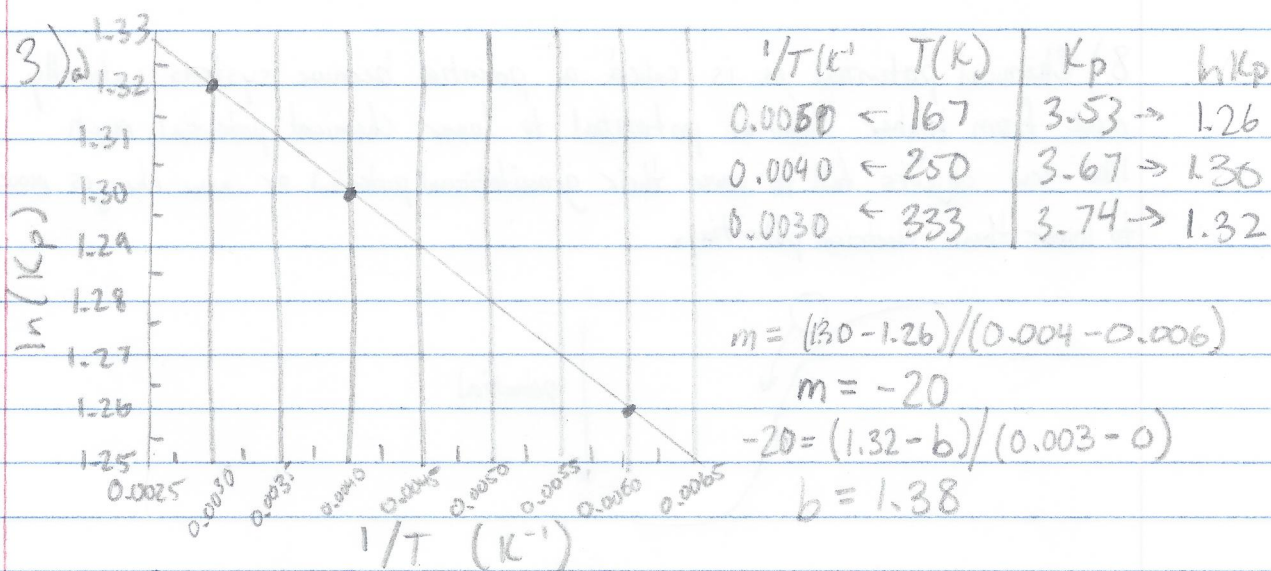 3)a)
ln(Kp)
1.33
1.32
1.31
1.30
1.29
1.28
1.27
1.26
1.25
0.0025 0.0030 0.0035 0.0040 0.0045 0.0050 0.0055 0.0060 0.0065
1/T (K⁻¹)
1/T(K⁻¹ T(K) Kp lnKp
0.0060 ← 167 3.53 → 1.26
0.0040 ← 250 3.67 → 1.30
0.0030 ← 333 3.74 → 1.32
m = (1.30-1.26)/(0.004-0.006)
m = -20
-20 = (1.32-b)/(0.003-0)
b = 1.38